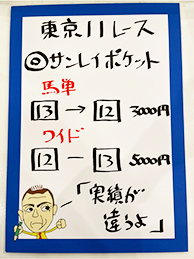 東京11レース
◎サンレイポケット
馬単
13→12 3000円
ワイド
12―13 5000円
「実績が
違うよ」